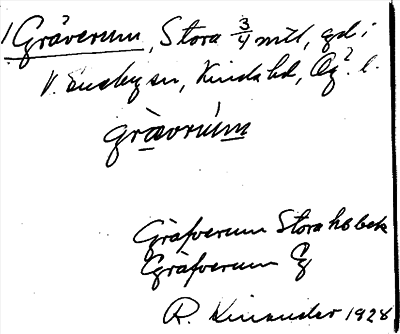 1 Gräverum, Stora ¾ mtl, gd i
V. Eneby sn, Kinda hd, Ög. l.
grävrùm
Gräfverum Stora hb bck
Gräfverum Eg
R. Kinander 1928